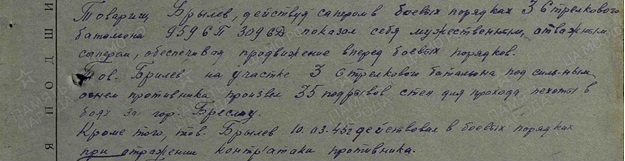 Товарищ Брылев, действуя сапером в боевых порядках 3 стрелкового
батальона 959 СП 309 СД показал себя мужественным, отважным
сапером, обеспечивая продвижение вперед боевых порядков.
Тов. Брылев на участке 3 стрелкового батальона под сильным
огнем противника произвел 35 подрывов стен для прохода пехоты в
боях за гор. Бреслау.
Кроме того, тов. Брылев 10.03.45г действовал в боевых порядках
при отражении контратаки противника.